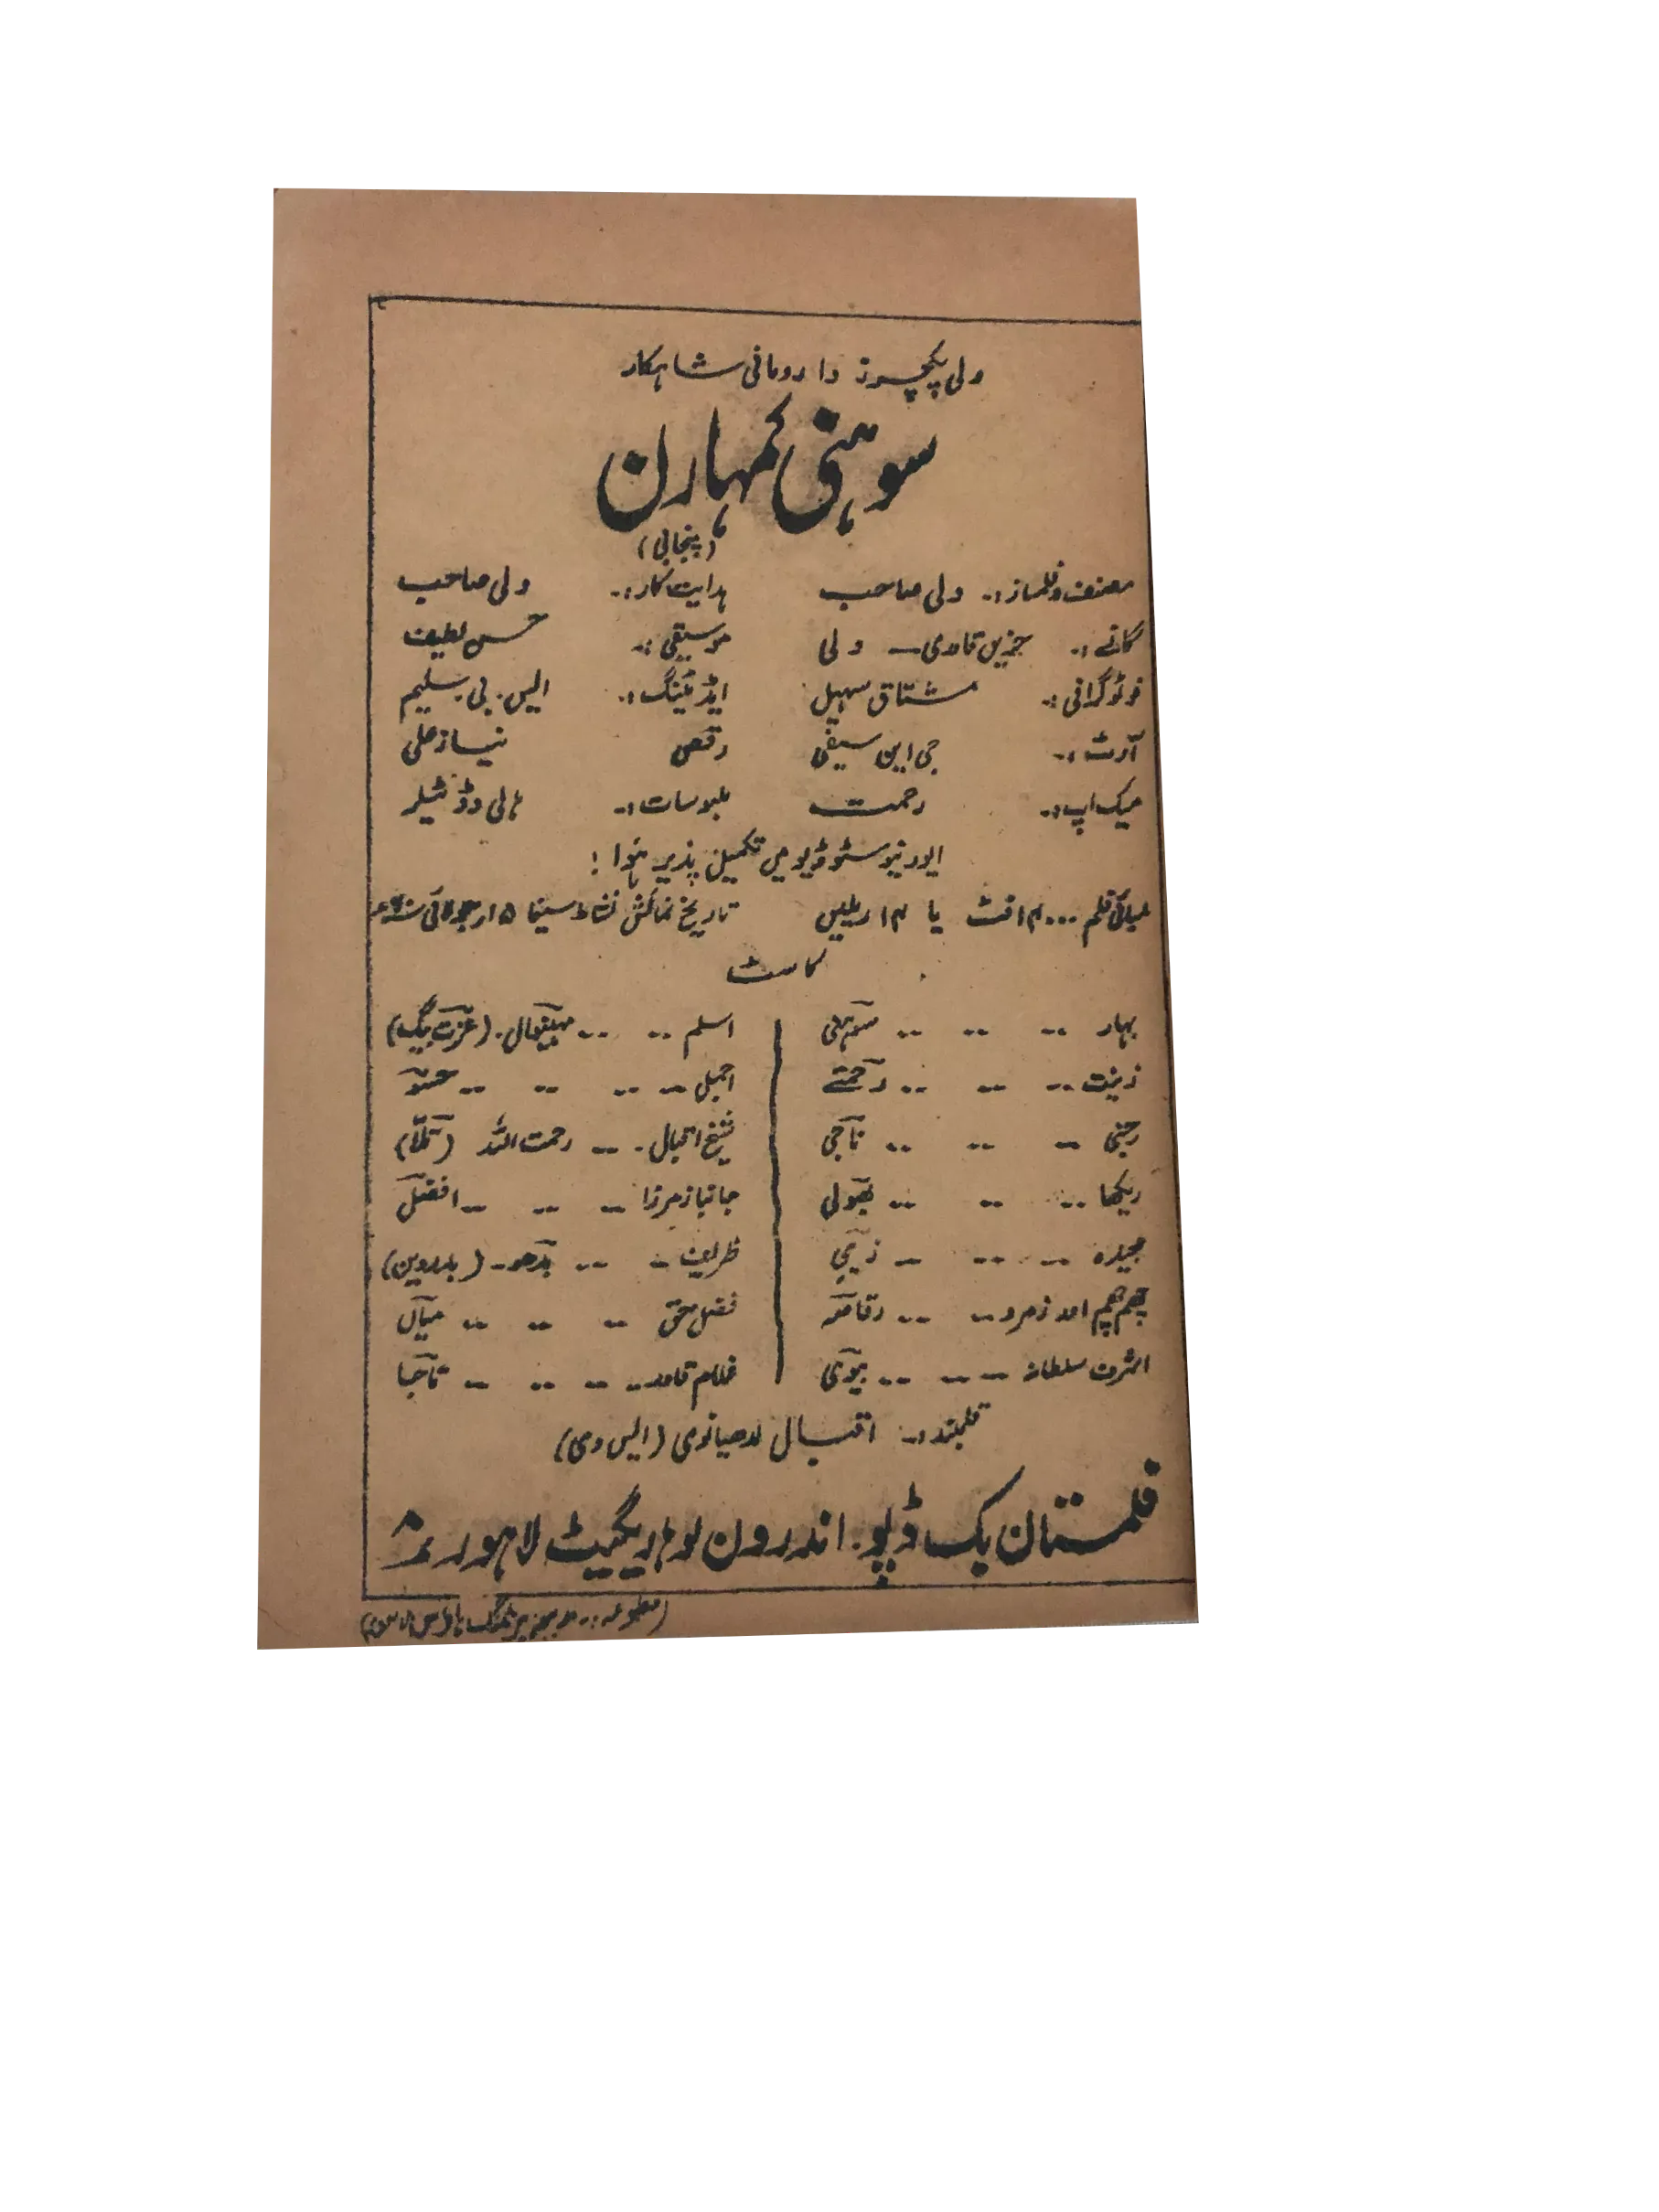 ولی پکچرز دا رومانی شاہکار
سوہنی کمہارن
(پنجابی)
مصنف و فلمساز :۔ ولی صاحب ہدایت کار :۔ ولی صاحب
گانے :۔ حزیں قادری ۔ ولی موسیقی :۔ حسن لطیف
فوٹو گرافی :۔ مشتاق سہیل ایڈیٹنگ :۔ ایس۔ بی سلیم
آرٹ :۔ جی این سیفی رقص نیاز علی
میک اپ :۔ رحمت ملبوسات :۔ ہالی وڈ ٹیلر
ایورنیو سٹوڈیو میں تکمیل پذیر ہُوا !
لمبائی فلم ۱۴۰۰۰ فٹ یا ۱۴ ریلیں تاریخ نمائش نشاط سینما ۱۵ر جولائی ۶۰ء
کاسٹ
بہار ۔۔ ۔۔ ۔۔ سوہنی اسلم ۔۔ ۔۔ مہینوال۔ (عزت بیگ)
زینت ۔۔ ۔۔ ۔۔ رحمتے اجمل ۔۔ ۔۔ ۔۔ ۔۔
رجنی ۔۔ ۔۔ ۔۔ تاجی شیخ اقبال ۔ ۔۔ رحمت اللہ (تلا)
ریکھا ۔۔ ۔۔ ۔۔ بھولی جانباز مرزا ۔۔ ۔۔ ۔۔ افضل
مجیدہ ۔۔ ۔۔ ۔۔ زیبی ظریف ۔۔ ۔۔ بدھو۔ (بدردین)
چھم چھم اور زمرد ۔۔ ۔۔ رقاصہ فضل حق ۔۔ ۔۔ ۔۔ میاں
اشرف سلطانہ ۔۔ ۔۔ ۔۔ بیوی غلام قادر ۔۔ ۔۔ ۔۔ تاجا
قلمبند :۔ اقبال لدھیانوی (ایس وی)
فلمستان بک ڈپو۔ اندرون لوہاریگیٹ لاہور نمبر ۸
(مطبوعہ :۔ پرنٹنگ ہاؤس لاہور)